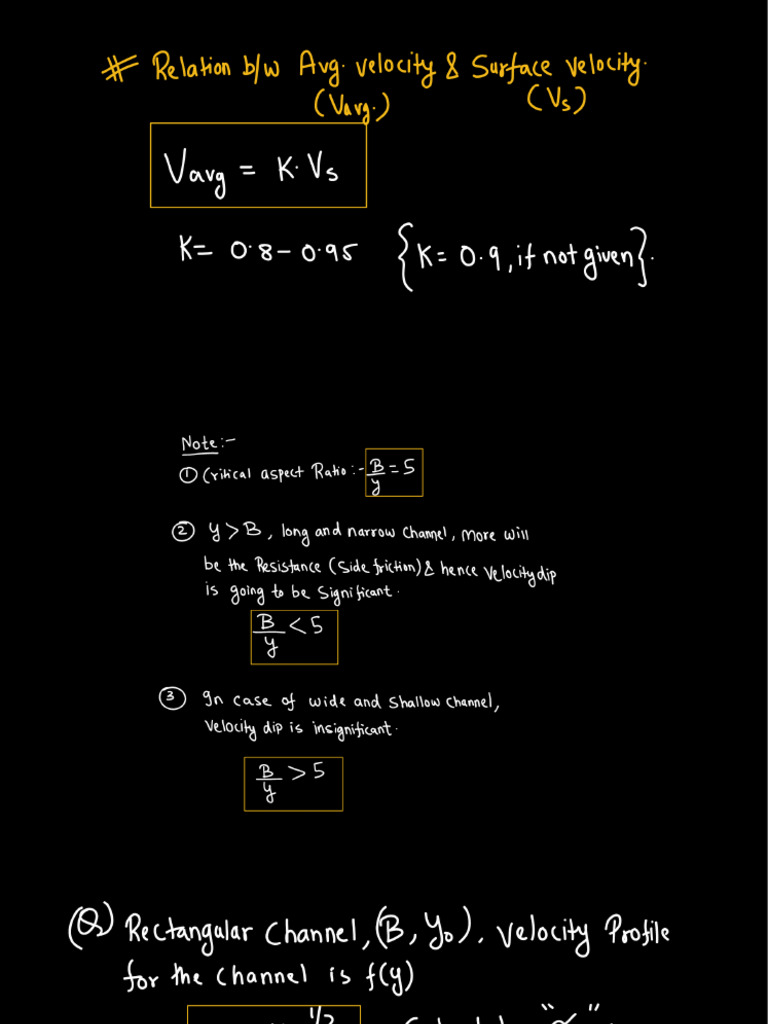 # Relation b/w Avg. velocity & Surface velocity.
(Vavg.) (Vs)
Vavg = K·Vs
K = 0.8 – 0.95 {K = 0.9, if not given}.
Note:-
① Critical aspect Ratio:- B/y = 5
② y > B, long and narrow channel, more will
be the Resistance (Side friction) & hence velocity dip
is going to be significant.
B/y < 5
③ In case of wide and shallow channel,
velocity dip is insignificant.
B/y > 5
(Q) Rectangular Channel, (B, yo). Velocity Profile
for the channel is f(y)
1/2